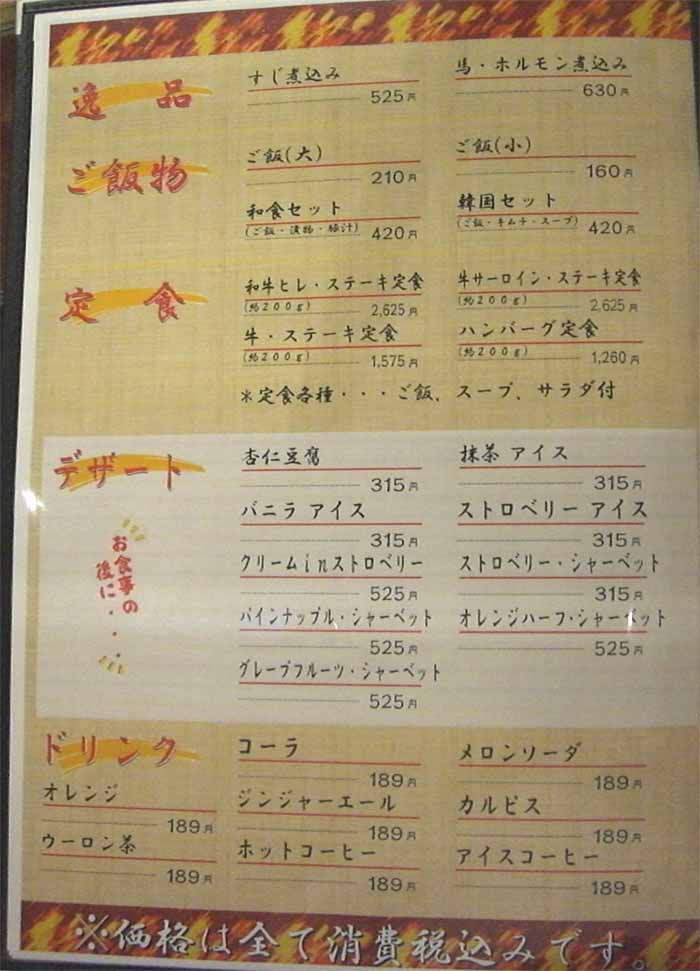 逸品
すじ煮込み
525円
馬・ホルモン煮込み
630円
ご飯物
ご飯(大)
210円
ご飯(小)
160円
和食セット
(ご飯・漬物・豚汁)
420円
韓国セット
(ご飯・キムチ・スープ)
420円
定食
和牛ヒレ・ステーキ定食
(約200g)
2,625円
牛サーロイン・ステーキ定食
(約200g)
2,625円
牛・ステーキ定食
(約200g)
1,575円
ハンバーグ定食
(約200g)
1,260円
*定食各種・・・ご飯、スープ、サラダ付
デザート
お食事の
後に・・・
杏仁豆腐
315円
抹茶 アイス
315円
バニラ アイス
315円
ストロベリー アイス
315円
クリームinストロベリー
525円
ストロベリー・シャーベット
315円
パインナップル・シャーベット
525円
オレンジハーフ・シャーベット
525円
グレープフルーツ・シャーベット
525円
ドリンク
コーラ
189円
メロンソーダ
189円
オレンジ
189円
ジンジャーエール
189円
カルピス
189円
ウーロン茶
189円
ホットコーヒー
189円
アイスコーヒー
189円
※価格は全て消費税込みです。